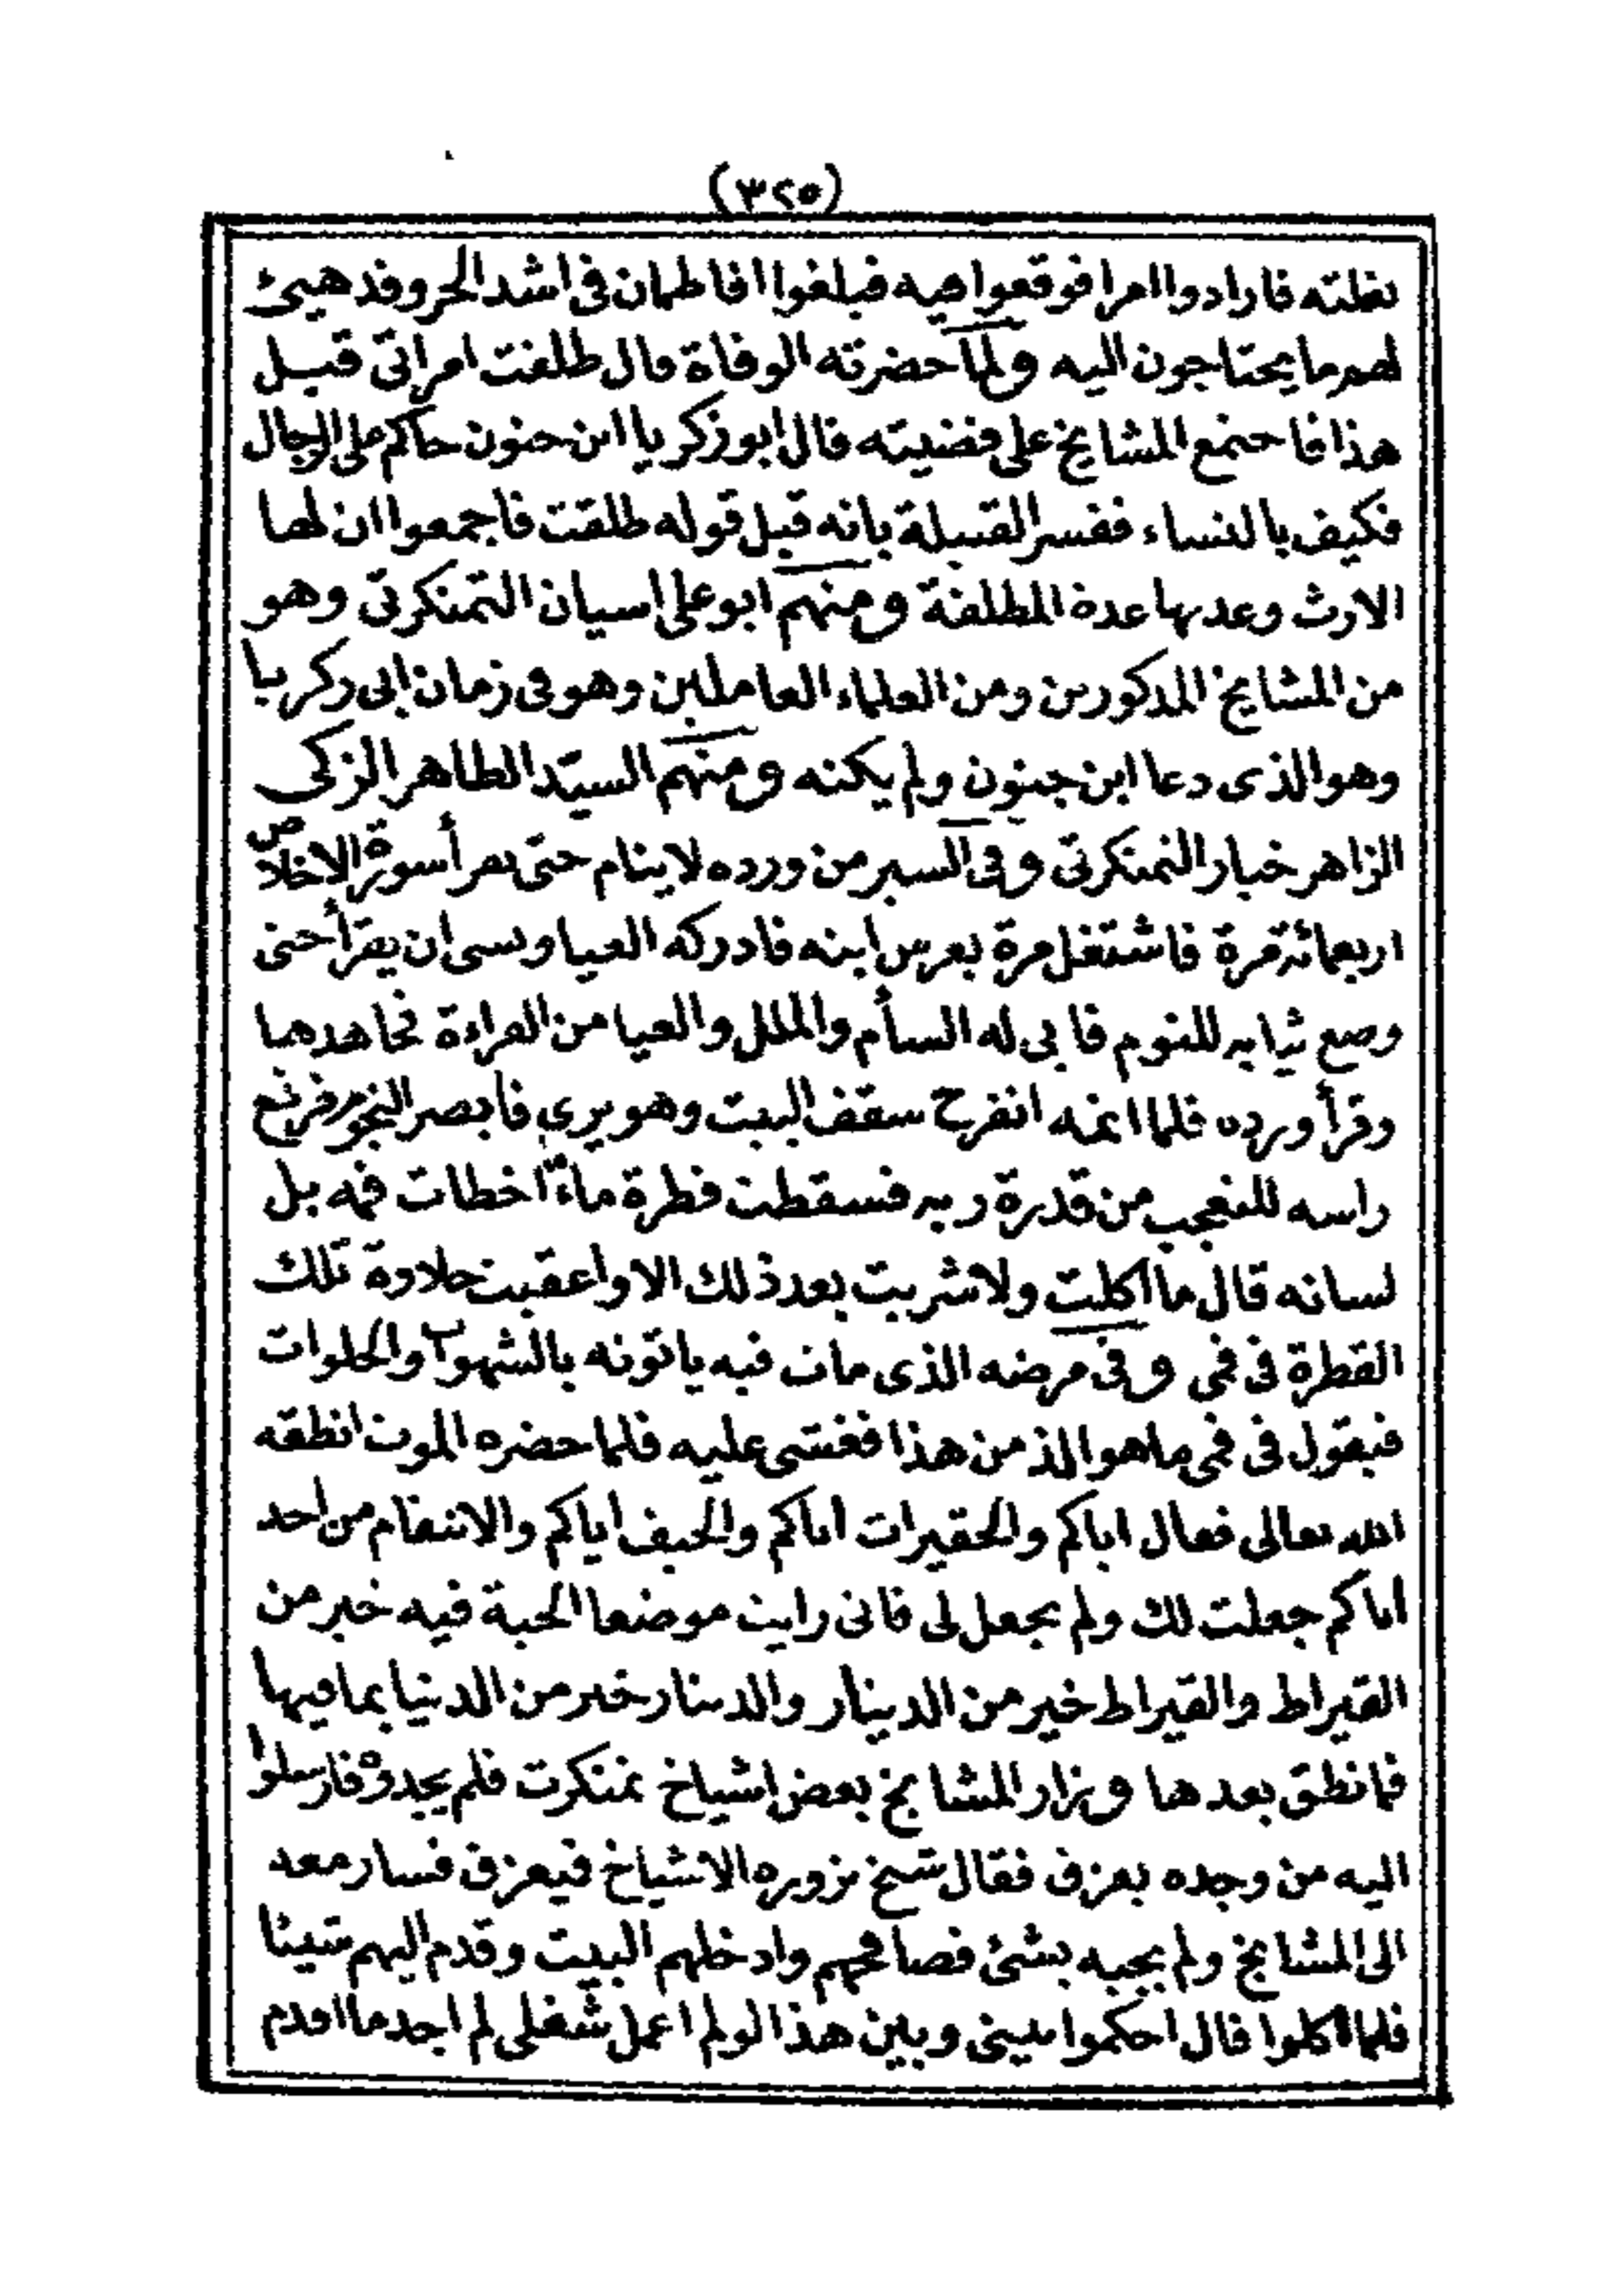 (٣٢٥)
نظلته فارادوا امرا فوقعوا فيه فبلغوا افاطمان فى اشد الحر وقد هيئ
لهم ما يحتاجون اليه ولما حضرته الوفاة قال طلقت امراتى قبل
هذا فاجتمع المشايخ على قضيته قال ابو زكريا ابن جنون حاكم على الرجال
فكيف بالنساء ففسر القبيلة بانه قبل قوله طلقت فاجمعوا ان لها
الارث وعدتها عدة المطلقة ومنهم ابو على اسيان التمنكرتى وهو
من المشايخ المذكورين ومن العلماء العاملين وهو فى زمان ابى زكريا
وهو الذى دعا ابن جنون ولم يكنه ومنهم السيد الطاهر الزكى
الزاهر خيار التمنكرتى وفى السير من ورده لا ينام حتى يقرأ سورة الاخلاص
اربعمائة مرة فاشتغل مرة بعرس ابنه فادركه العيا ونسى ان يقرأ حتى
وضع ثيابه للنوم فابى له السأم والملل والعيا من القراءة فجاهدهما
وقرأ ورده فلما اتمه انفرج سقف البيت وهو يرى فابصر النجوم فرفع
راسه للتعجب من قدرة ربه فسقطت قطرة ماء اخطات فمه بل
لسانه قال ما اكلت ولا شربت بعد ذلك الا واعقبت حلاوة تلك
القطرة فى فمى وفى مرضه الذى مات فيه ياتونه بالشهوات والحلوات
فيقول فى فمى ما هو الذ من هذا فغشى عليه فلما حضره الموت انطقه
الله تعالى فقال اياكم والحقيرات اياكم والحيف اياكم والانتقام من احد
اياكم جعلت لك ولم يجعل لى فانى رايت موضعا الحبة فيه خير من
القيراط والقيراط خير من الدينار والدينار خير من الدنيا بما فيها
فما نطق بعدها وزار المشايخ بعض اشياخ تمنكرت فلم يجدوه فارسلوا
اليه من وجده بعزق فقال شيخ تزوره الاشياخ فيعزق فسار معه
الى المشايخ ولم يجبه بشئ فصافحهم وادخلهم البيت وقدم اليهم شيئا
فلما اكلوا قال احكموا بينى وبين هذا لو لم اعمل شغلى لم اجد ما اقدم